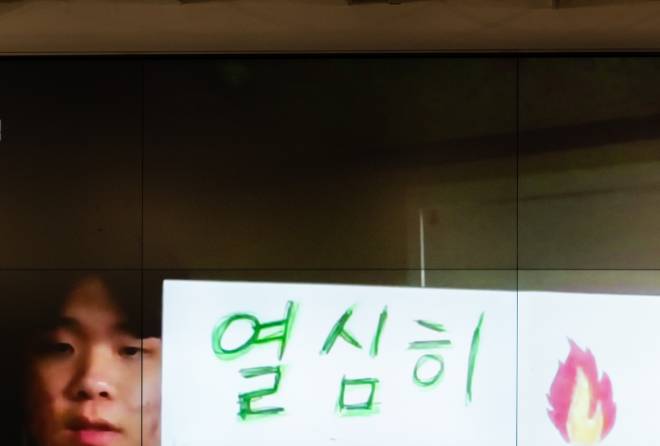 열심히